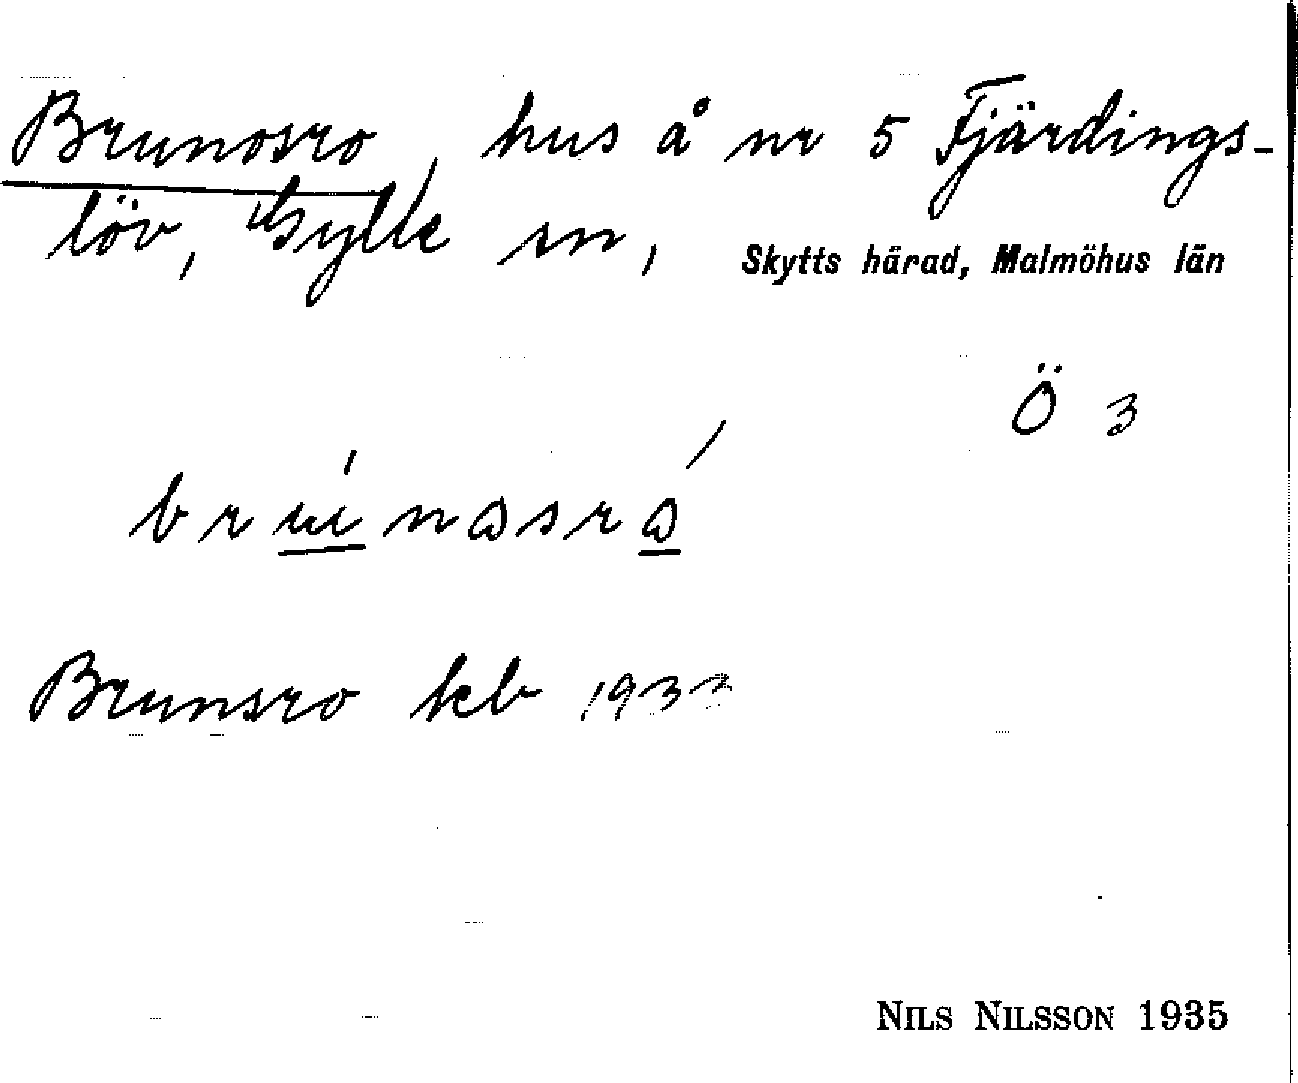 Brunosro, hus å nr 5 Fjärdings-
löv, Gylle sn, Skytts härad, Malmöhus län
Ö 3
Brunsro kb 1933
NILS NILSSON 1935